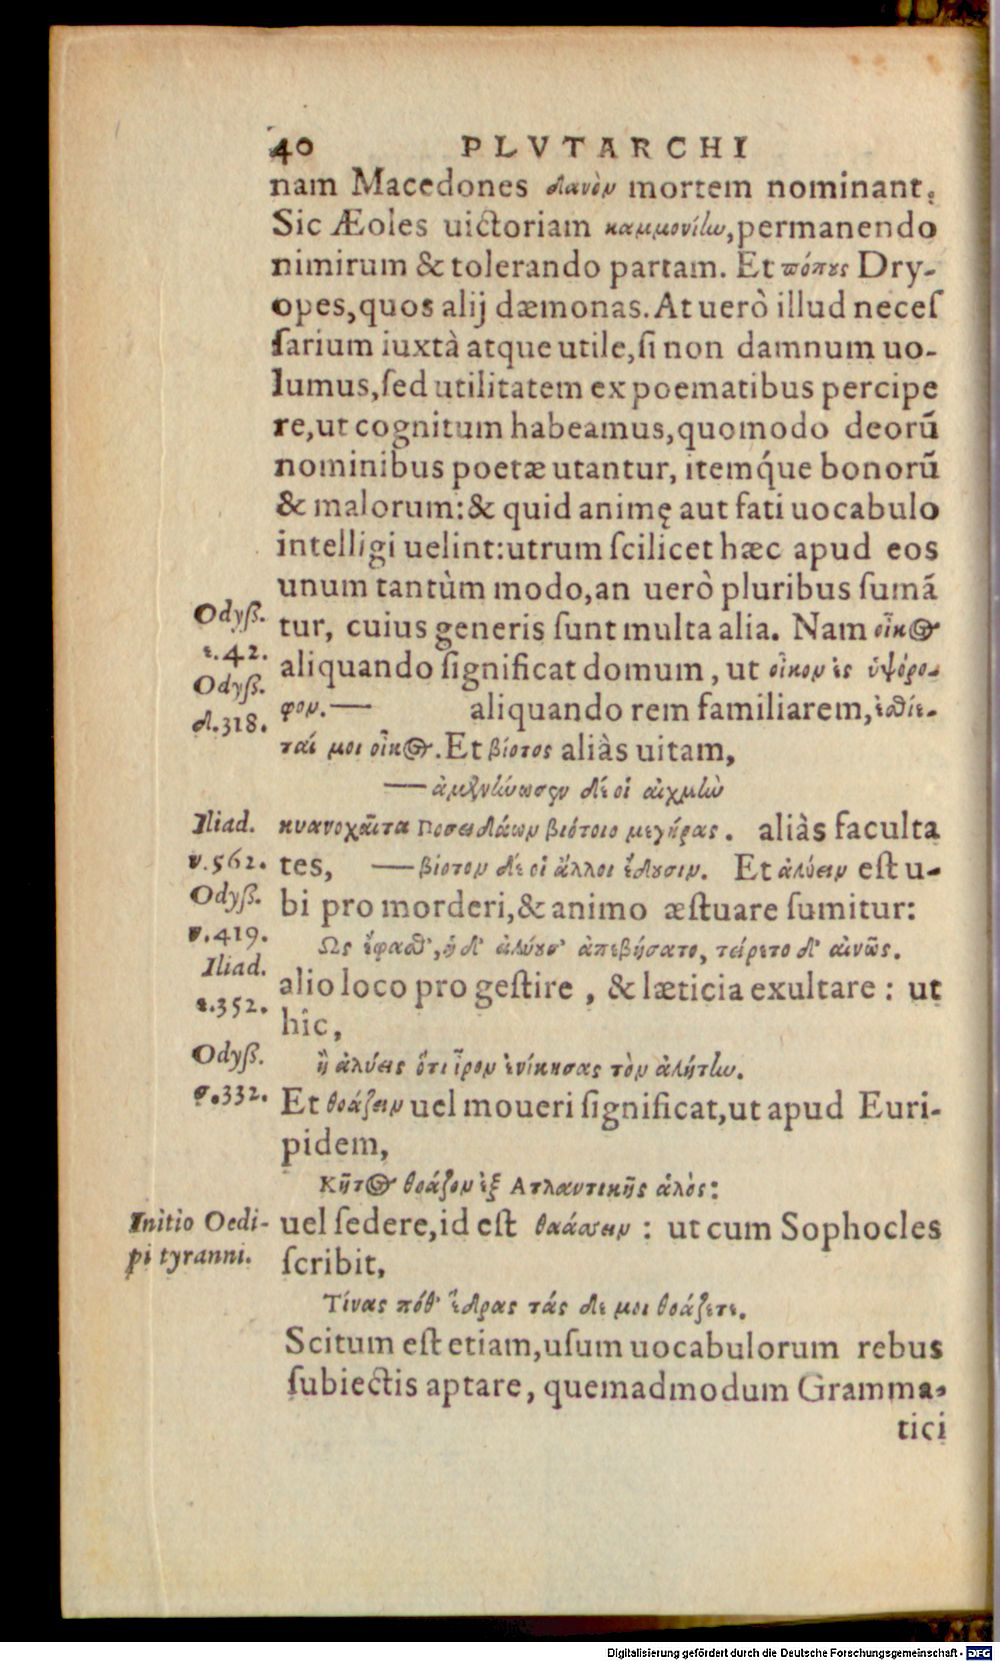 40 PLVTARCHI
nam Macedones δανὸν mortem nominant.
Sic Æoles uictoriam καμμονίην, permanendo
nimirum & tolerando partam. Et πόπους Dry-
opes, quos alij dæmonas. At uerò illud neceſ
ſarium iuxtà atque utile, ſi non damnum uo-
lumus, ſed utilitatem ex poematibus percipe
re, ut cognitum habeamus, quomodo deorũ
nominibus poetæ utantur, itemq́ue bonorũ
& malorum: & quid animę aut fati uocabulo
intelligi uelint: utrum ſcilicet hæc apud eos
unum tantùm modo, an uerò pluribus ſumã
Odyß.
tur, cuius generis ſunt multa alia. Nam οἶκος
ε.42.
aliquando ſignificat domum, ut οἶκον ἐς ὑψόρο-
Odyß.
φον.— aliquando rem familiarem, ἐσθίε-
δ.318.
ταί μοι οἶκος. Et βίοτος aliàs uitam,
— ἀμενήνωσεν δέ οἱ αἰχμὴν
Iliad.
κυανοχαῖτα Ποσειδάων βιότοιο μεγήρας. aliàs faculta
ν.562.
tes, — βίοτον δέ οἱ ἄλλοι ἔδουσιν. Et ἀλύειν eſt u-
Odyß.
bi pro morderi, & animo æſtuare ſumitur:
ν.419.
Ως ἔφαθ', ἡ δ' ἀλύουσ' ἀπεβήσατο, τείρετο δ' αἰνῶς.
Iliad.
alio loco pro geſtire, & læticia exultare: ut
ε.352.
hic,
Odyß.
ἢ ἀλύεις ὅτι ἶρον ἐνίκησας τὸν ἀλήτην.
σ.332.
Et θοάζειν uel moueri ſignificat, ut apud Euri-
pidem,
Κῆτος θοάζον ἐξ Ατλαντικῆς ἁλός:
Initio Oedi-
uel ſedere, id eſt θαάσσειν: ut cum Sophocles
pi tyranni.
ſcribit,
Τίνας πόθ' ἕδρας τάς δε μοι θοάζετε.
Scitum eſt etiam, uſum uocabulorum rebus
ſubiectis aptare, quemadmodum Gramma-
tici
Digitalisierung gefördert durch die Deutsche Forschungsgemeinschaft - DFG